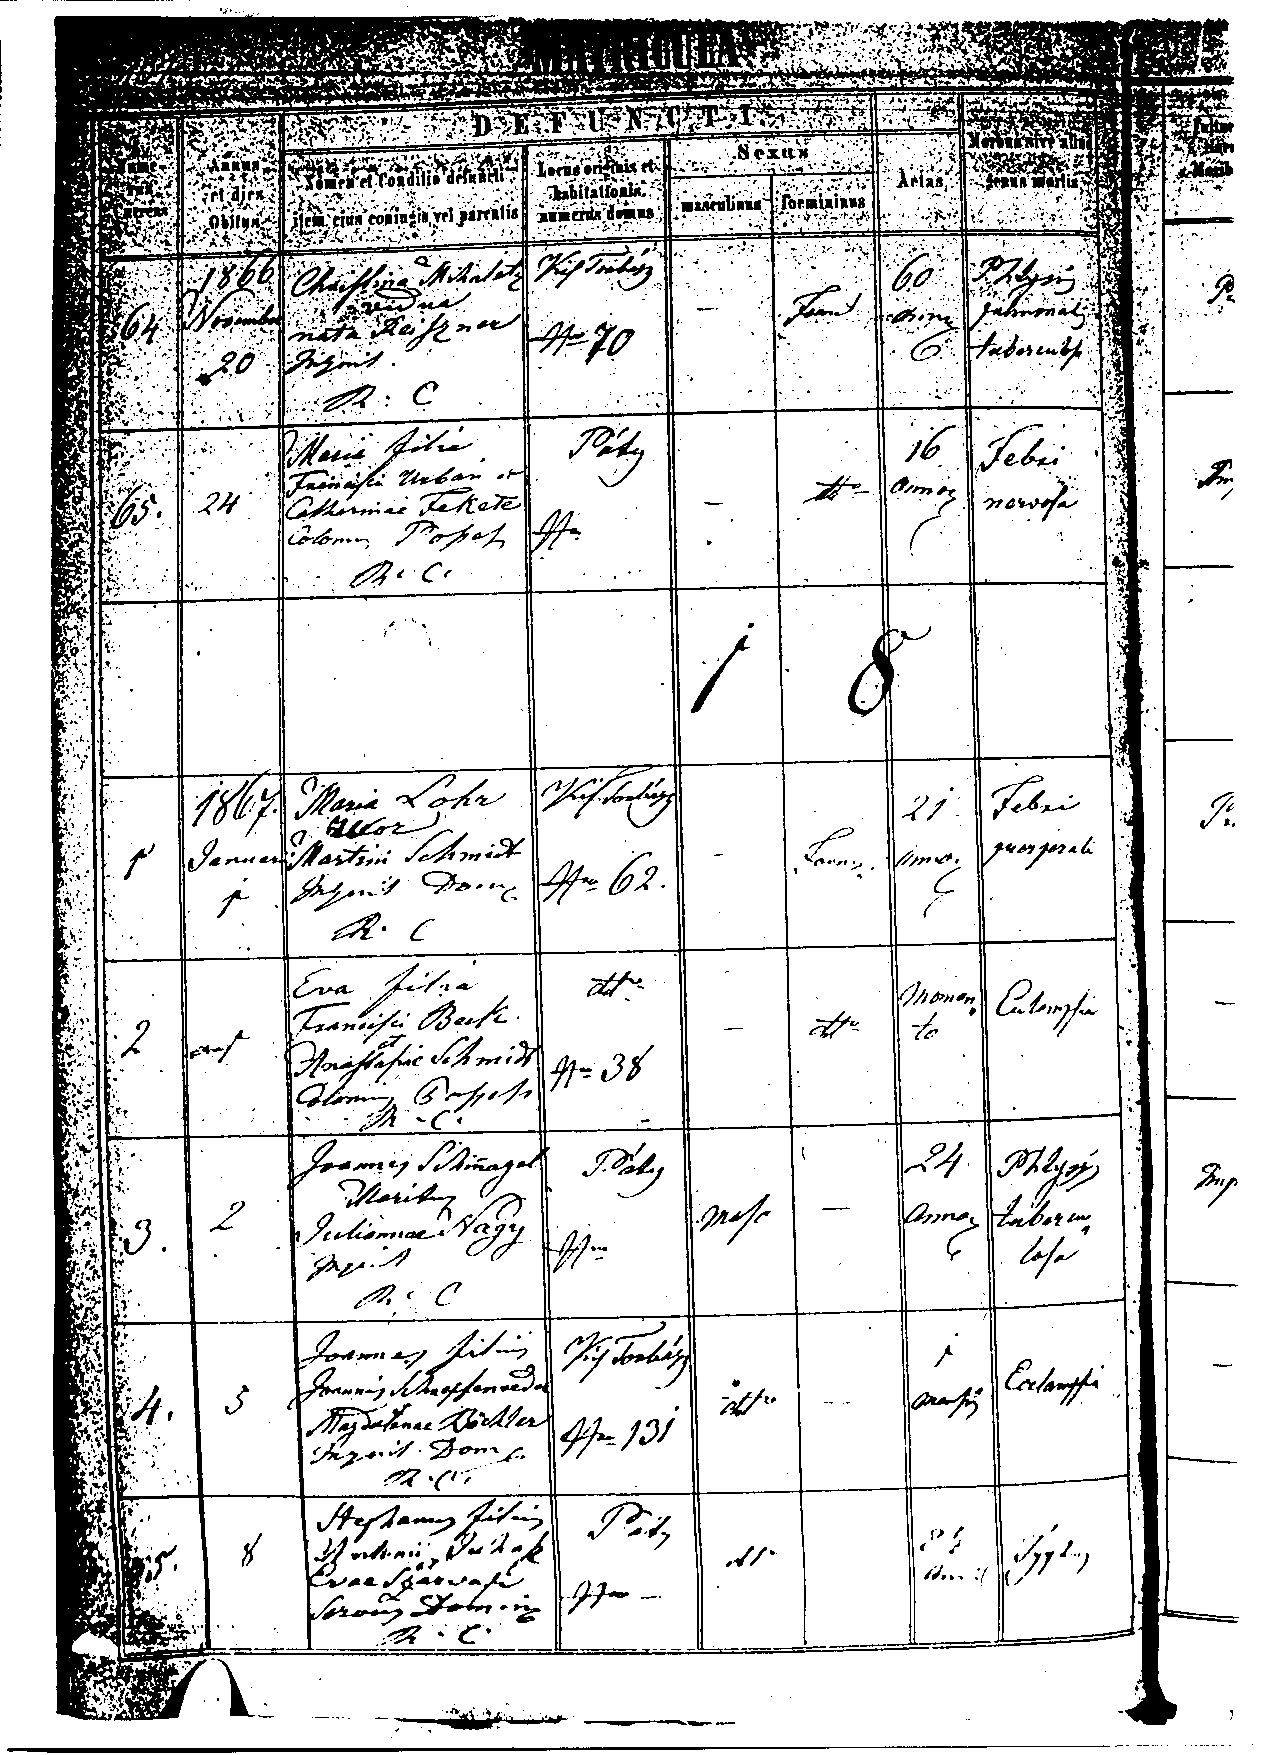 MATRICULA
DEFUNCTI
Numerus currens
Annus et dies Obitus
Nomen et Conditio defuncti item ejus conjugis vel parentis
Locus originis et habitationis numerus domus
Sexus
masculinus
foemininus
Aetas
Morbus sive aliud genus mortis
64
1866
November
20
Christina
vidua
nata Reiszner
Inquil
R. C
Kis Torbágy
Nro 70
–
Foem
60
annor
Phtysis
pulmonalis
tuberculos
65.
24
Maria filia
Francisci Urban et
Catharinae Fekete
Colonus
R. C.
Páty
Nro
–
dtto
16
annor
Febri
nervosa
1 8
1
1867.
Januar
1
Maria Lohr
uxor
Martini Schmidt
Inquil Dom
R. C
Kis Torbágy
Nro 62.
–
Foem.
21
annor
Febri
puerperali
2
Eva filia
Francisci Beck
et
Anastasiae Schmidt
Colonus
R. C.
dtto
Nro 38
–
dtto
Momen
to
Eclampsia
3.
2
Joannes Schnagel
Maritus
Juliannae Nagy
Inquil
R. C
Páty
Nro
Masc
–
24
annor
Phtysis
tubercu
losa
4.
5
Joannes filius
Joannis
Magdalenae Büchler
Inquil Dom
R. C.
Kis Torbágy
Nro 131
dtto
–
1
mensis
Eclampsia
5.
8
Stephanus filius
Antonii Juhasz
Evae Szarvasi
Servus Domin
R. C.
Páty
Nro –
dtto